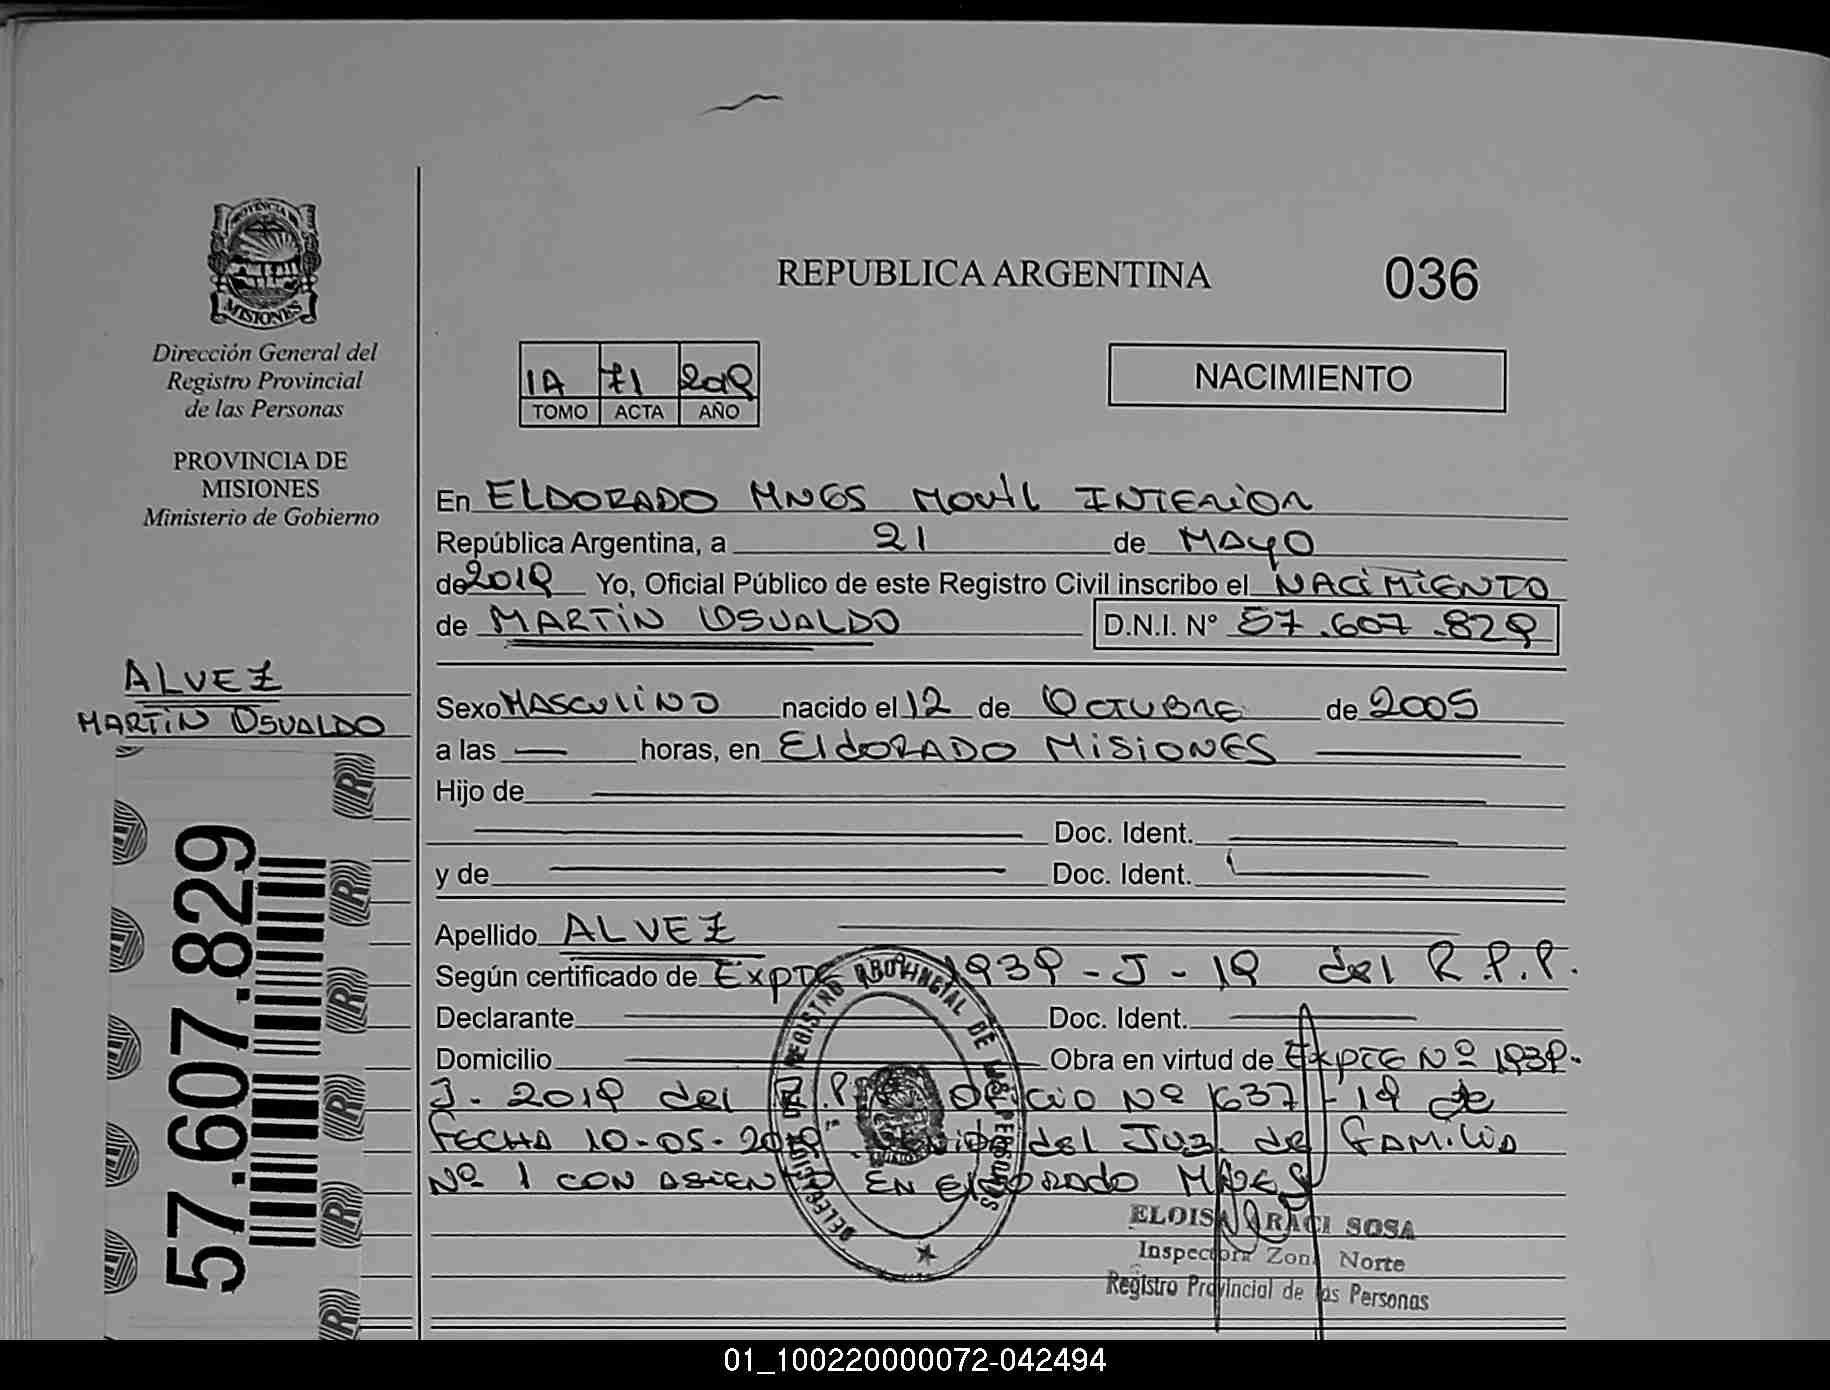 PROVINCIA DE
MISIONES
Dirección General del
Registro Provincial
de las Personas
PROVINCIA DE
MISIONES
Ministerio de Gobierno
ALVEZ
MARTIN OSVALDO
57.607.829
REPUBLICA ARGENTINA
036
1A 71 2019
TOMO ACTA AÑO
NACIMIENTO
En ELDORADO MNES MOVIL INTERIOR
República Argentina, a 21 de MAYO
de 2019 Yo, Oficial Público de este Registro Civil inscribo el NACIMIENTO
de MARTIN OSVALDO D.N.I. N° 57.607.829
Sexo MASCULINO nacido el 12 de OCTUBRE de 2005
a las — horas, en ElDORADO MISIONES
Hijo de
Doc. Ident.
y de Doc. Ident.
Apellido ALVEZ
Según certificado de EXPTE 1939-J-19 del R.P.P.
Declarante Doc. Ident.
Domicilio Obra en virtud de EXPTE Nº 1939-
J-2019 del R.P.P. OFICIO Nº 1637-19 de
FECHA 10-05-2019 del Juz. de FAMILIA
Nº 1 CON ASIENTO EN ELDORADO MNES
DELEGACION DEL REGISTRO PROVINCIAL DE LAS PERSONAS
ELOISA ARACI SOSA
Inspectora Zona Norte
Registro Provincial de las Personas
01_100220000072-042494